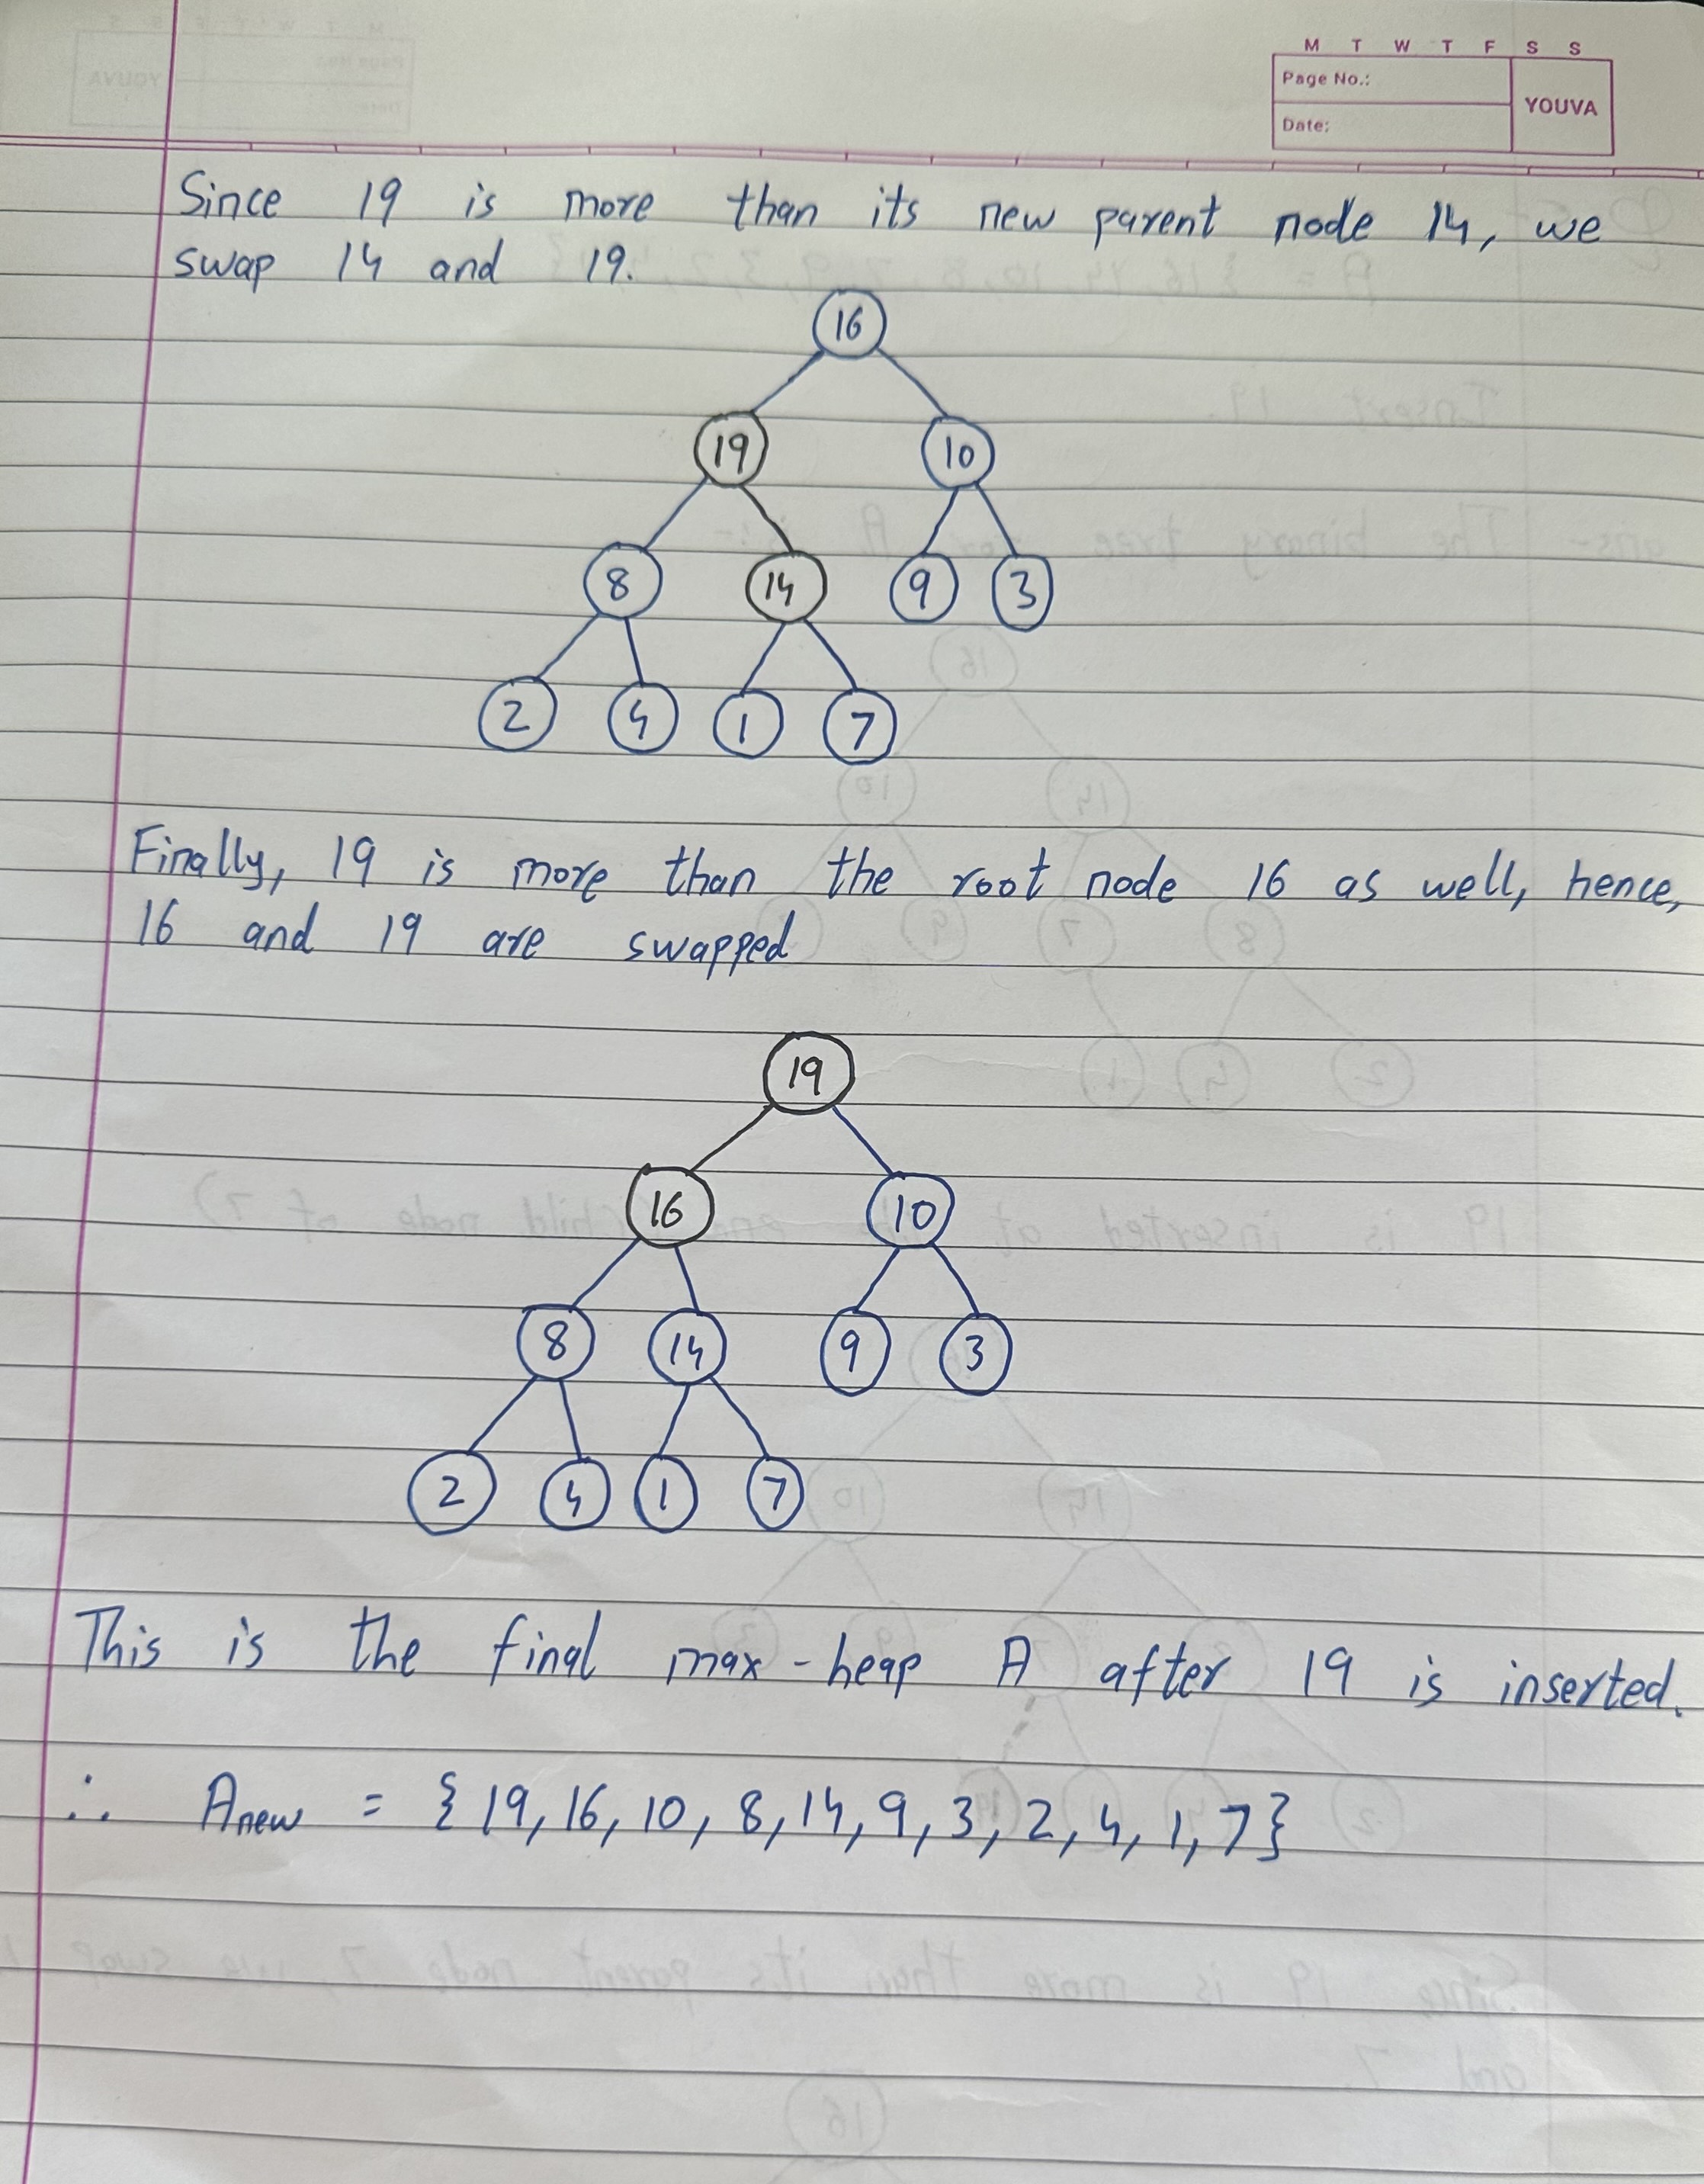 M T W T F S S
Page No.:
YOUVA
Date:
Since 19 is more than its new parent node 14, we
swap 14 and 19.
16
19 10
8 14 9 3
2 4 1 7
Finally, 19 is more than the root node 16 as well, hence,
16 and 19 are swapped
19
16 10
8 14 9 3
2 4 1 7
This is the final max-heap A after 19 is inserted.
∴ Anew = {19, 16, 10, 8, 14, 9, 3, 2, 4, 1, 7}